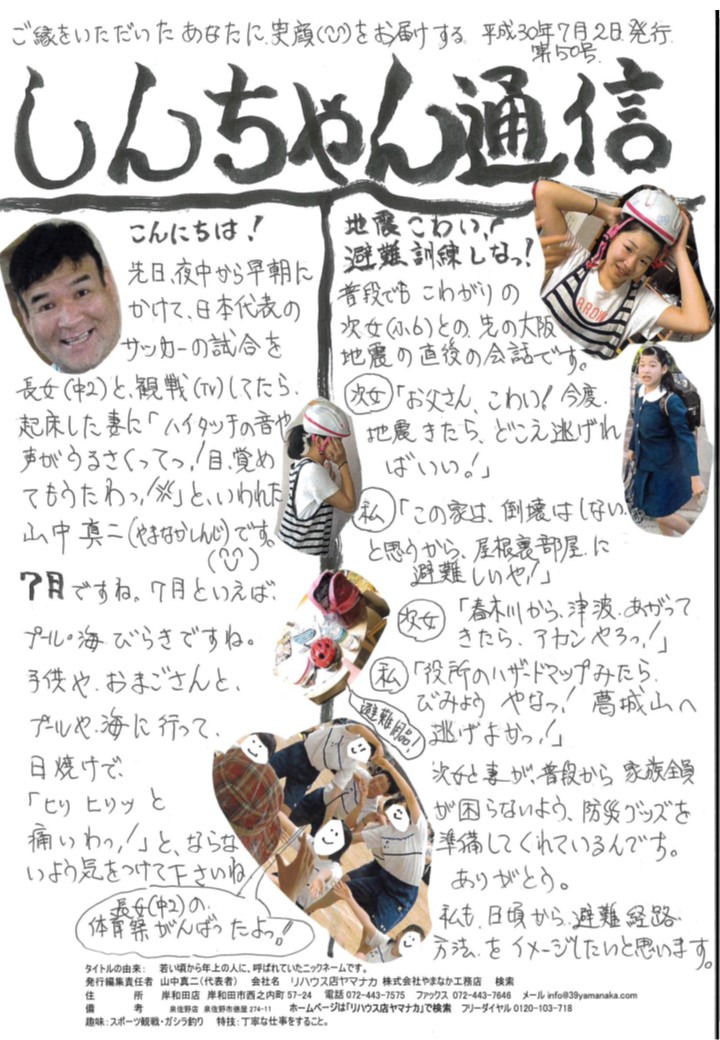 ご縁をいただいた あなたに 笑顔(‿)をお届けする 平成30年7月2日発行
第50号
しんちゃん通信
こんにちは!
先日、夜中から早朝に
かけて、日本代表の
サッカーの試合を
長女(中2)と、観戦(TV)してたら、
起床した妻に「ハイタッチの音や
声がうるさくってっ!目、覚め
てもうたわっ!※」と、いわれた
山中真二(やまなかしんじ)です。
7月ですね。7月といえば、
プール・海びらきですね。
子供や、おまごさんと、
プールや、海に行って、
日焼けで、
「ヒリ ヒリッ と
痛いわっ!」と、ならな
いよう気をつけて下さいね
長女(中2)の
体育祭がんばったよっ!
地震こわい!
避難訓練しなっ!
普段でも こわがりの
次女(小6)との、先の大阪
地震の直後の会話です。
次女「お父さん、こわい!今度、
地震きたら、どこえ逃げれ
ばいい!」
私「この家は、倒壊はしない
と思うから、屋根裏部屋に
避難しいや!」
次女「春木川から、津波、あがって
きたら、アカンやろっ!」
私「役所のハザードマップみたら、
びみょう やなっ!葛城山へ
逃げよかっ!」
避難用品!
次女と妻が、普段から 家族全員
が困らないよう、防災グッズを
準備してくれているんです。
ありがとう。
私も、日頃から、避難経路
方法、をイメージしたいと思います。
タイトルの由来: 若い頃から年上の人に、呼ばれていたニックネームです。
発行編集責任者 山中真二(代表者) 会社名 リハウス店ヤマナカ 株式会社やまなか工務店 検索
住 所 岸和田店 岸和田市西之内町57-24 電話 072-443-7575 ファックス 072-443-7646 メール info@39yamanaka.com
備 考 泉佐野店 泉佐野市俵屋274-11 ホームページは「リハウス店ヤマナカ」で検索 フリーダイヤル 0120-103-718
趣味:スポーツ観戦・ガシラ釣り 特技:丁寧な仕事をすること。